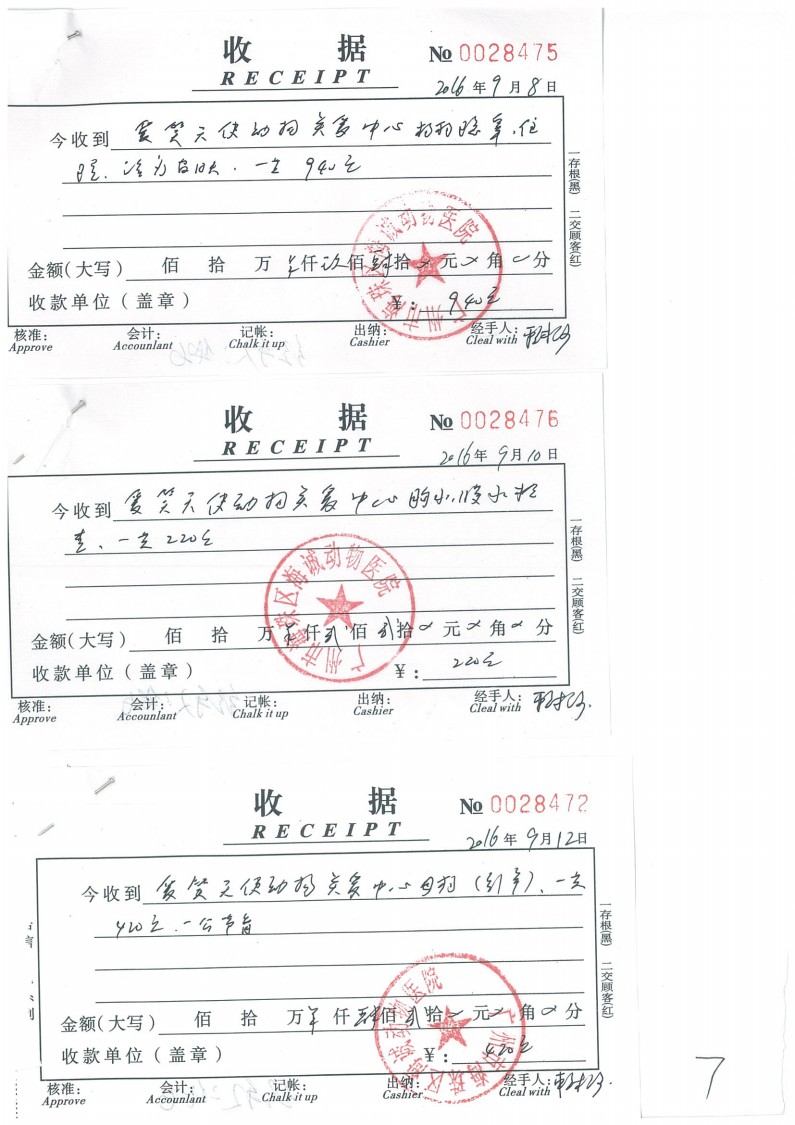 收 据
№ 0028475
RECEIPT
2016年9月8日
今收到 爱笑天使动物关爱中心
一共 940元
金额(大写) 佰 拾 万 仟玖佰肆拾 元 角 分
收款单位(盖章) ¥: 940元
核准: 会计: 记帐: 出纳: 经手人:
Approve Accounlant Chalk it up Cashier Cleal with
一存根(黑) 二交顾客(红)
广州市海珠区海诚动物医院
收 据
№ 0028476
RECEIPT
2016年9月10日
今收到 爱笑天使动物关爱中心
一共 220元
金额(大写) 佰 拾 万 仟贰佰贰拾 元 角 分
收款单位(盖章) ¥: 220元
核准: 会计: 记帐: 出纳: 经手人:
Approve Accounlant Chalk it up Cashier Cleal with
一存根(黑) 二交顾客(红)
广州市海珠区海诚动物医院
收 据
№ 0028472
RECEIPT
2016年9月12日
今收到 爱笑天使动物关爱中心母狗 一共
420元
金额(大写) 佰 拾 万 仟肆佰贰拾 元 角 分
收款单位(盖章) ¥: 420元
核准: 会计: 记帐: 出纳: 经手人:
Approve Accounlant Chalk it up Cashier Cleal with
一存根(黑) 二交顾客(红)
广州市海珠区海诚动物医院
7